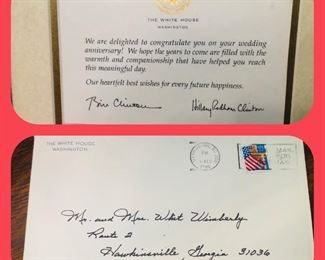 THE WHITE HOUSE
WASHINGTON
We are delighted to congratulate you on your wedding
anniversary! We hope the years to come are filled with the
warmth and companionship that have helped you reach
this meaningful day.
Our heartfelt best wishes for every future happiness.
Bill Clinton
Hillary Rodham Clinton
THE WHITE HOUSE
WASHINGTON
PM
Mr. and Mrs. Whit Wimberly
Route 2
Hawkinsville, Georgia 31036